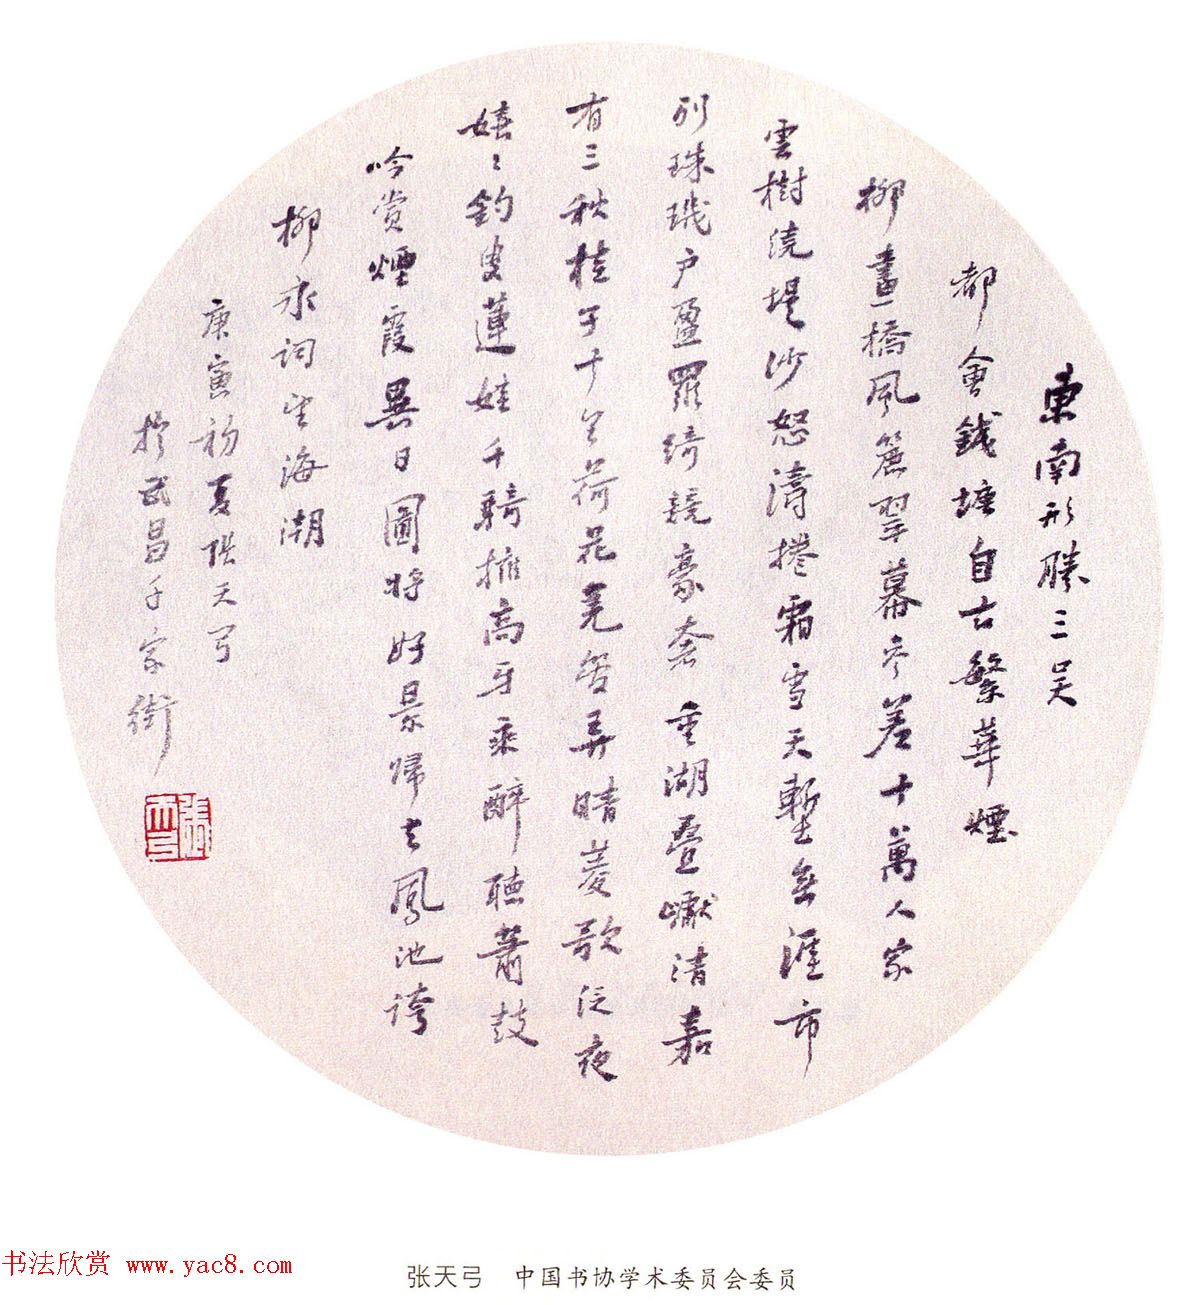 東南形勝三吳
都會錢塘自古繁華煙
柳畫橋風簾翠幕參差十萬人家
雲樹繞堤沙怒濤捲霜雪天塹無涯市
列珠璣户盈羅綺競豪奢重湖疊巘清嘉
有三秋桂子十里荷花羌管弄晴菱歌泛夜
嬉〻釣叟蓮娃千騎擁高牙乘醉聽蕭鼓
吟賞煙霞異日圖將好景歸去鳳池誇
柳永詞望海潮
庚寅初夏張天弓
於武昌千家街
張天弓
书法欣赏 www.yac8.com
张天弓 中国书协学术委员会委员